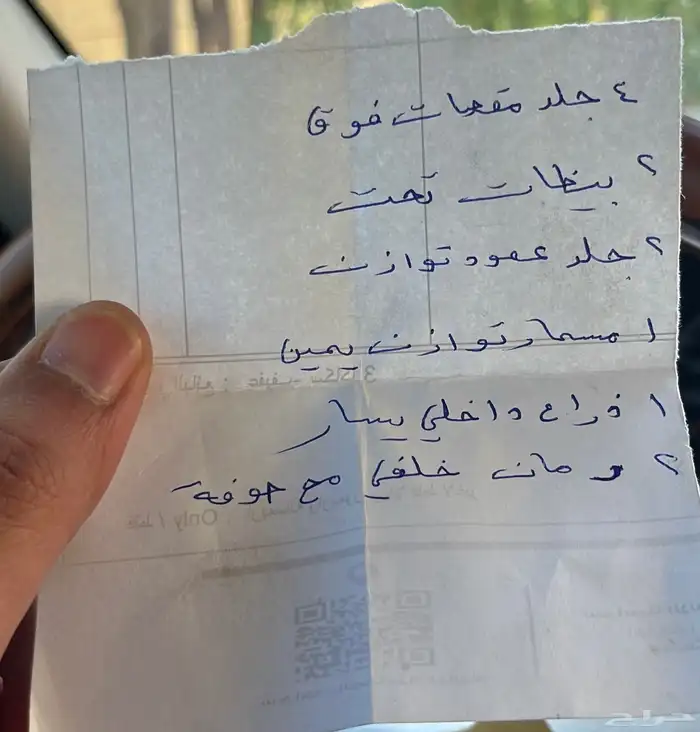 ٤ جلد مقصات فوق
٢ بيظات تحت
٢ جلد عمود توازن
١ مسمار توازن يمين
١ ذراع داخلي يسار
٢ رمان خلفي مع حوفة
Only /
حراج